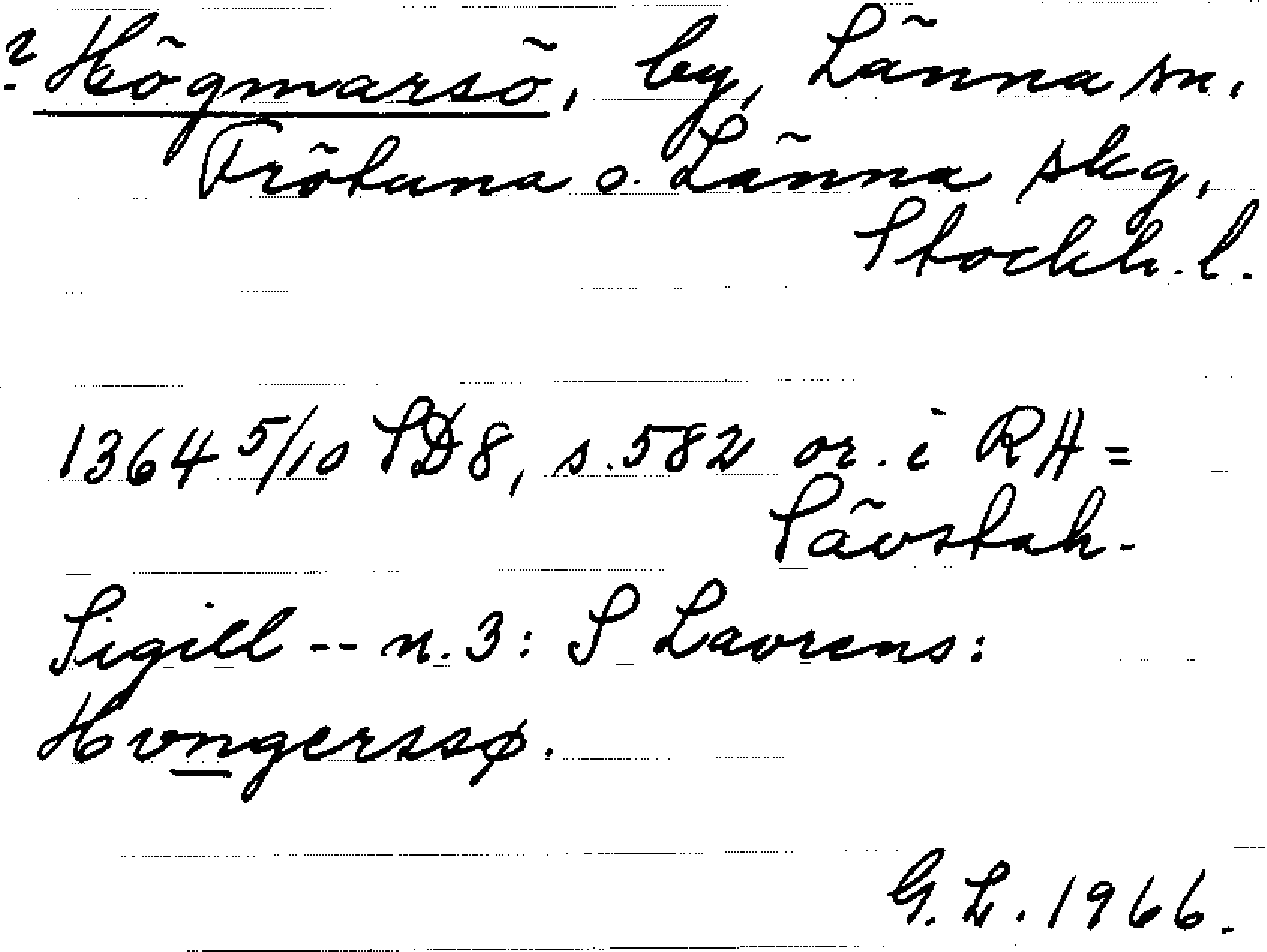 ? Högmarsö, by, Länna sn.
Frötuna o. Länna skg,
Stockh. l.
1364 5/10 SD 8, s. 582 or. i RA =
Sävstah.
Sigill -- n. 3: S Lavrens:
Hvngerssø.
G. L. 1966.